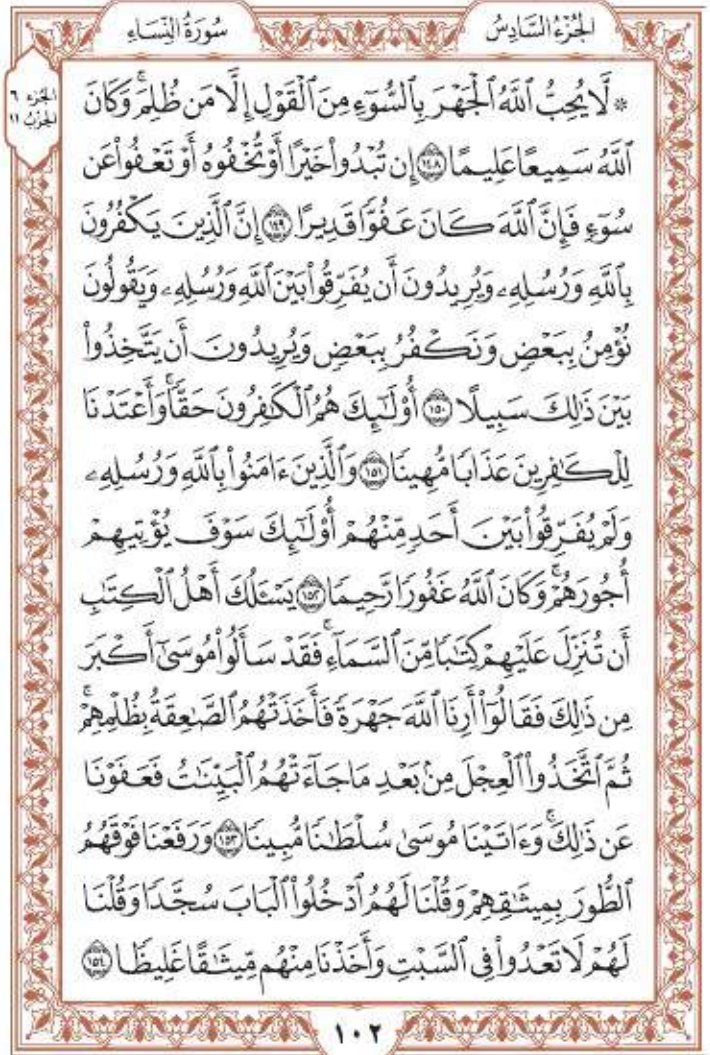 سُورَةُ النِّسَاءِ
الجُزْءُ السَّادِسُ
الجزء ٦
الحزب ١١
۞ لَّا يُحِبُّ ٱللَّهُ ٱلْجَهْرَ بِٱلسُّوٓءِ مِنَ ٱلْقَوْلِ إِلَّا مَن ظُلِمَ ۚ وَكَانَ
ٱللَّهُ سَمِيعًا عَلِيمًا ١٤٨ إِن تُبْدُوا۟ خَيْرًا أَوْ تُخْفُوهُ أَوْ تَعْفُوا۟ عَن
سُوٓءٍ فَإِنَّ ٱللَّهَ كَانَ عَفُوًّا قَدِيرًا ١٤٩ إِنَّ ٱلَّذِينَ يَكْفُرُونَ
بِٱللَّهِ وَرُسُلِهِۦ وَيُرِيدُونَ أَن يُفَرِّقُوا۟ بَيْنَ ٱللَّهِ وَرُسُلِهِۦ وَيَقُولُونَ
نُؤْمِنُ بِبَعْضٍ وَنَكْفُرُ بِبَعْضٍ وَيُرِيدُونَ أَن يَتَّخِذُوا۟
بَيْنَ ذَٰلِكَ سَبِيلًا ١٥٠ أُو۟لَـٰٓئِكَ هُمُ ٱلْكَـٰفِرُونَ حَقًّا ۚ وَأَعْتَدْنَا
لِلْكَـٰفِرِينَ عَذَابًا مُّهِينًا ١٥١ وَٱلَّذِينَ ءَامَنُوا۟ بِٱللَّهِ وَرُسُلِهِۦ
وَلَمْ يُفَرِّقُوا۟ بَيْنَ أَحَدٍ مِّنْهُمْ أُو۟لَـٰٓئِكَ سَوْفَ يُؤْتِيهِمْ
أُجُورَهُمْ ۗ وَكَانَ ٱللَّهُ غَفُورًا رَّحِيمًا ١٥٢ يَسْـَٔلُكَ أَهْلُ ٱلْكِتَـٰبِ
أَن تُنَزِّلَ عَلَيْهِمْ كِتَـٰبًا مِّنَ ٱلسَّمَآءِ ۚ فَقَدْ سَأَلُوا۟ مُوسَىٰٓ أَكْبَرَ
مِن ذَٰلِكَ فَقَالُوٓا۟ أَرِنَا ٱللَّهَ جَهْرَةً فَأَخَذَتْهُمُ ٱلصَّـٰعِقَةُ بِظُلْمِهِمْ ۚ
ثُمَّ ٱتَّخَذُوا۟ ٱلْعِجْلَ مِنۢ بَعْدِ مَا جَآءَتْهُمُ ٱلْبَيِّنَـٰتُ فَعَفَوْنَا
عَن ذَٰلِكَ ۚ وَءَاتَيْنَا مُوسَىٰ سُلْطَـٰنًا مُّبِينًا ١٥٣ وَرَفَعْنَا فَوْقَهُمُ
ٱلطُّورَ بِمِيثَـٰقِهِمْ وَقُلْنَا لَهُمُ ٱدْخُلُوا۟ ٱلْبَابَ سُجَّدًا وَقُلْنَا
لَهُمْ لَا تَعْدُوا۟ فِى ٱلسَّبْتِ وَأَخَذْنَا مِنْهُم مِّيثَـٰقًا غَلِيظًا ١٥٤
١٠٢